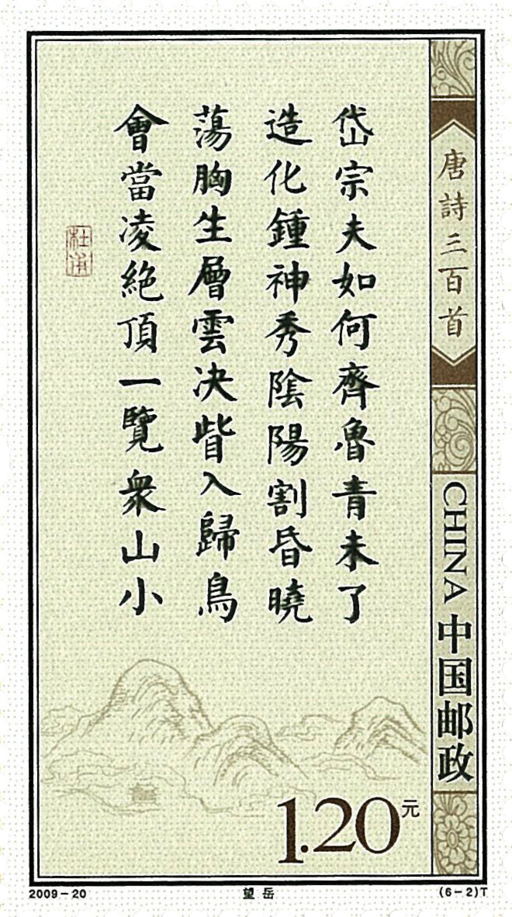 岱宗夫如何齊魯青未了
造化鍾神秀陰陽割昏曉
蕩胸生層雲决眥入歸鳥
會當凌絕頂一覽衆山小
杜甫
唐詩三百首
CHINA 中国邮政
1.20元
2009-20
望岳
(6-2)T